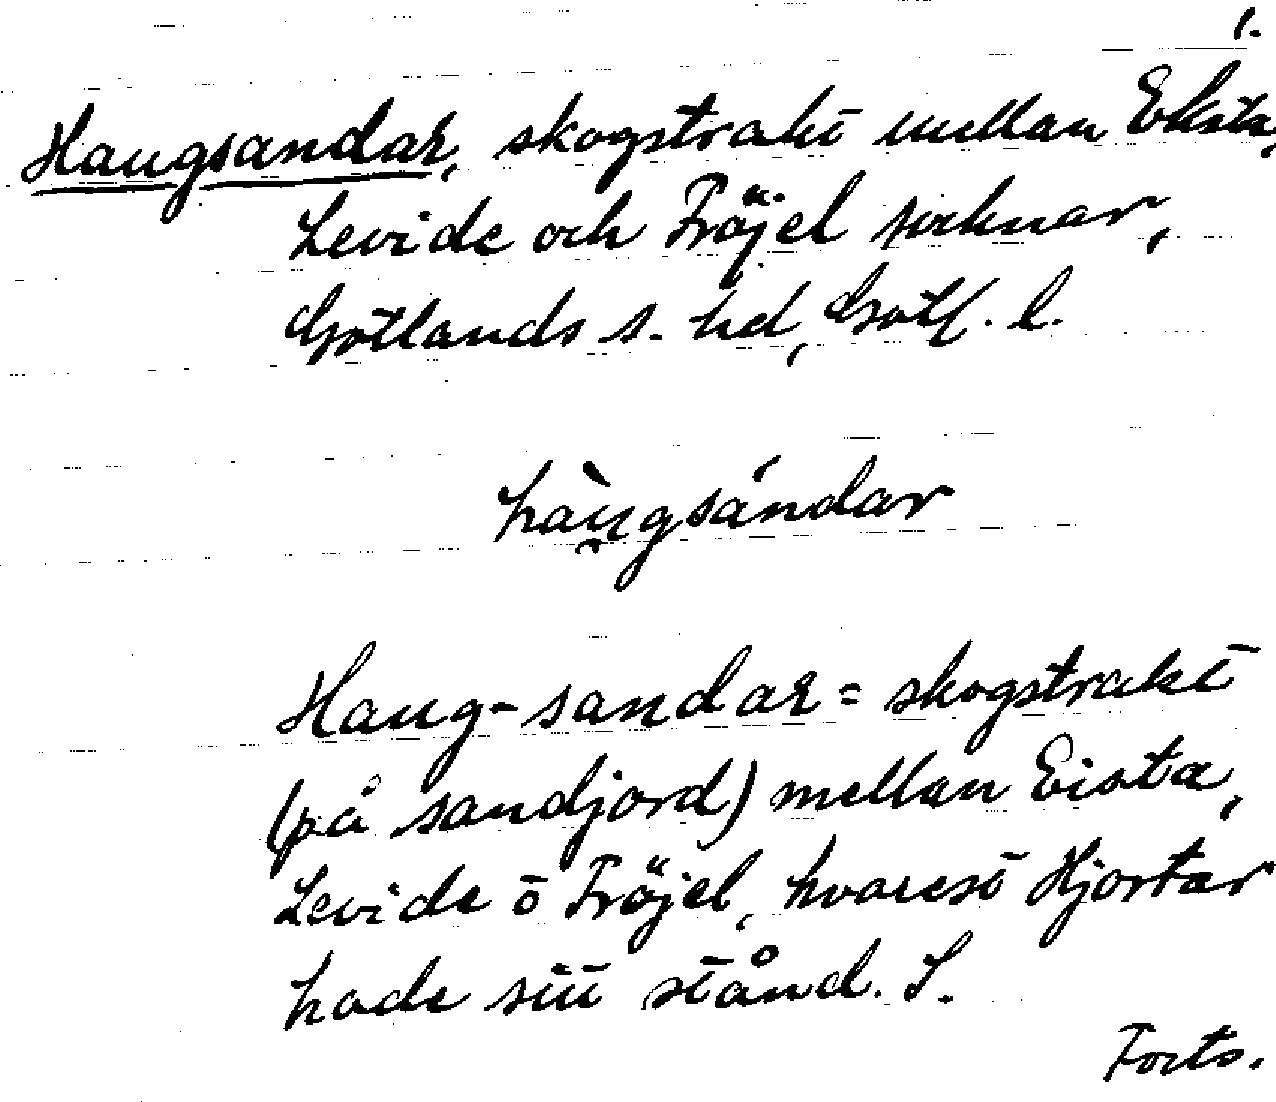 1.
Haugsandar, skogstrakt mellan Eksta,
Levide och Fröjel socknar,
Gotlands s. hd, Gotl. l.
hàu̯gsándar
Haug-sandar = skogstrakt
(på sandjord) mellan Eista,
Levide o Fröjel, hvarest Hjortar
hade sitt stånd. S.
Forts.